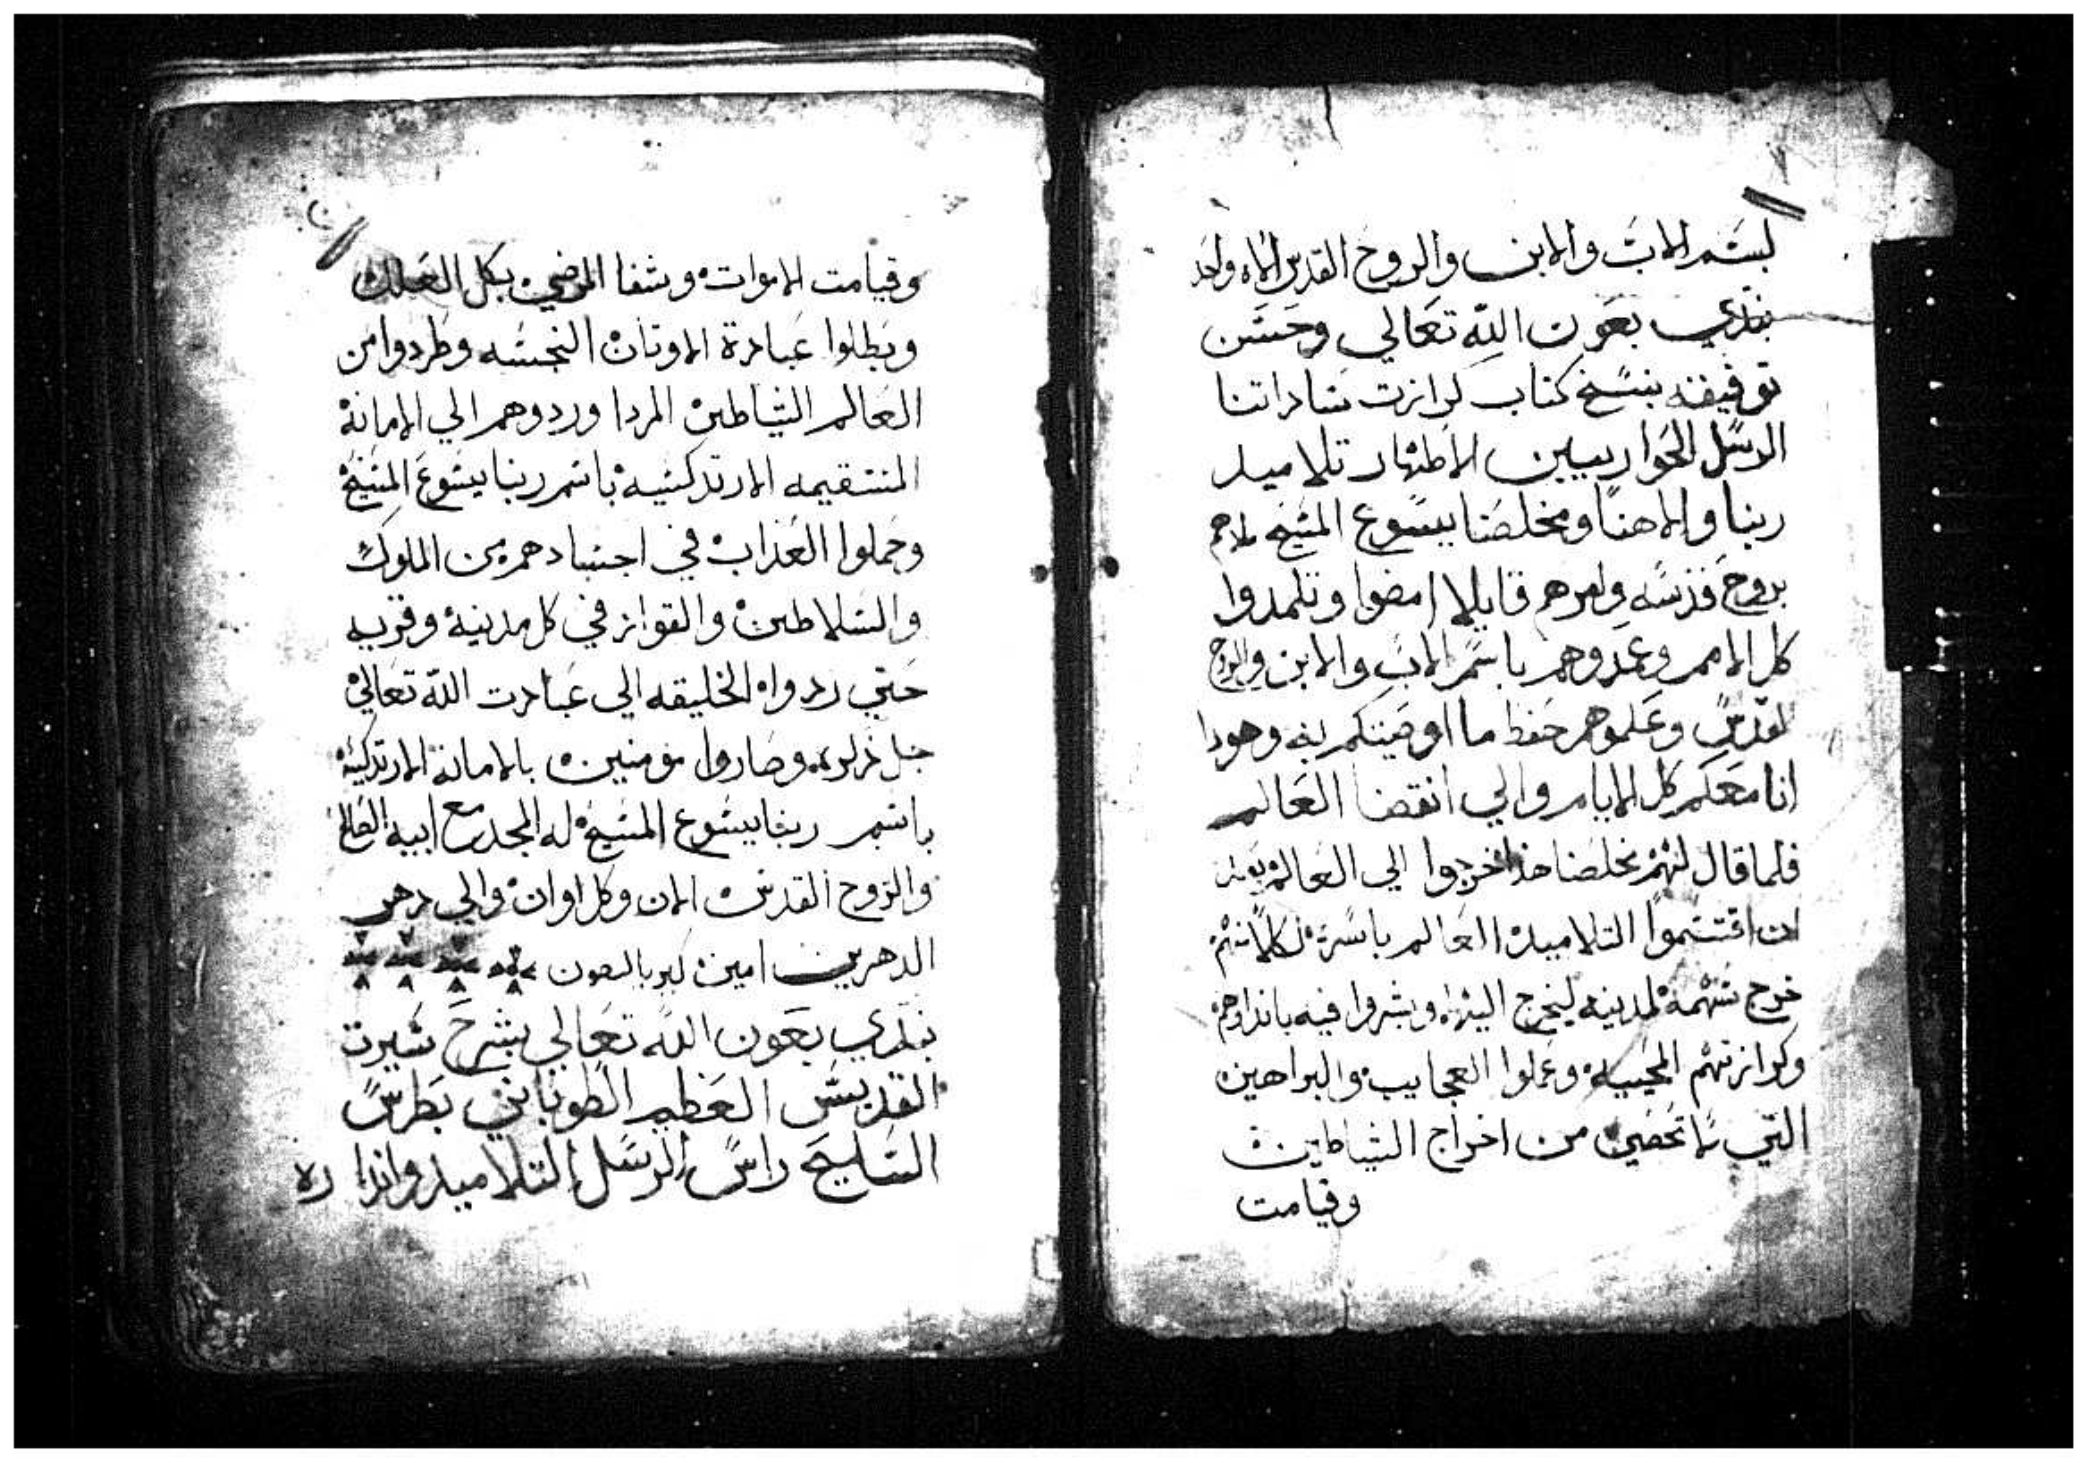 بسم الاب والابن والروح القدس الاه واحد
نبتدي بعون الله تعالي وحسن
توفيقه بنسخ كتاب كرازت ساداتنا
الرسل الحواريين الاطهار تلاميد
ربنا والاهنا ومخلصنا يسوع المسيح ملاهم
بروح قدسه وامرهم قايلا امضوا وتلمدوا
كل الامم وعمدوهم باسم الاب والابن والروح
القدس وعلموهم حفظ ما اوصيتكم به وهودا
انا معكم كل الايام والي انقضا العالم
فلما قال لهم مخلصنا هذا خرجوا الي العالم بعد
ان اقتسموا التلاميد العالم باسره لكلا منهم
خرج سهمه لمدينه ليخرج اليها ويبشروا فيه باندارهم
وكرازتهم المحييه وعملوا العجايب والبراهين
التي لا تحصي من اخراج الشياطين
وقيامت
وقيامت الاموات وشفا المرضي بكل العلل
وبطلوا عبادة الاوتان النجسه وطردوا من
العالم الشياطين المردا وردوهم الي الامانة
المستقيمه الارتدكسيه باسم ربنا يسوع المسيح
وحملوا العذاب في اجسادهم من الملوك
والسلاطين والقواد في كل مدينة وقريه
حتي ردوا الخليقه الي عبادت الله تعالي
جل ذكره وصاروا مومنين بالامانة الارتدكسية
باسم ربنا يسوع المسيح له المجد مع ابيه الصالح
والروح القدس الان وكل اوان والي دهر
الدهرين امين كيرياليصون
نبتدي بعون الله تعالي بشرح سيرت
القديس العظيم الطوباني بطرس
السليح راس الرسل التلاميد وانداره